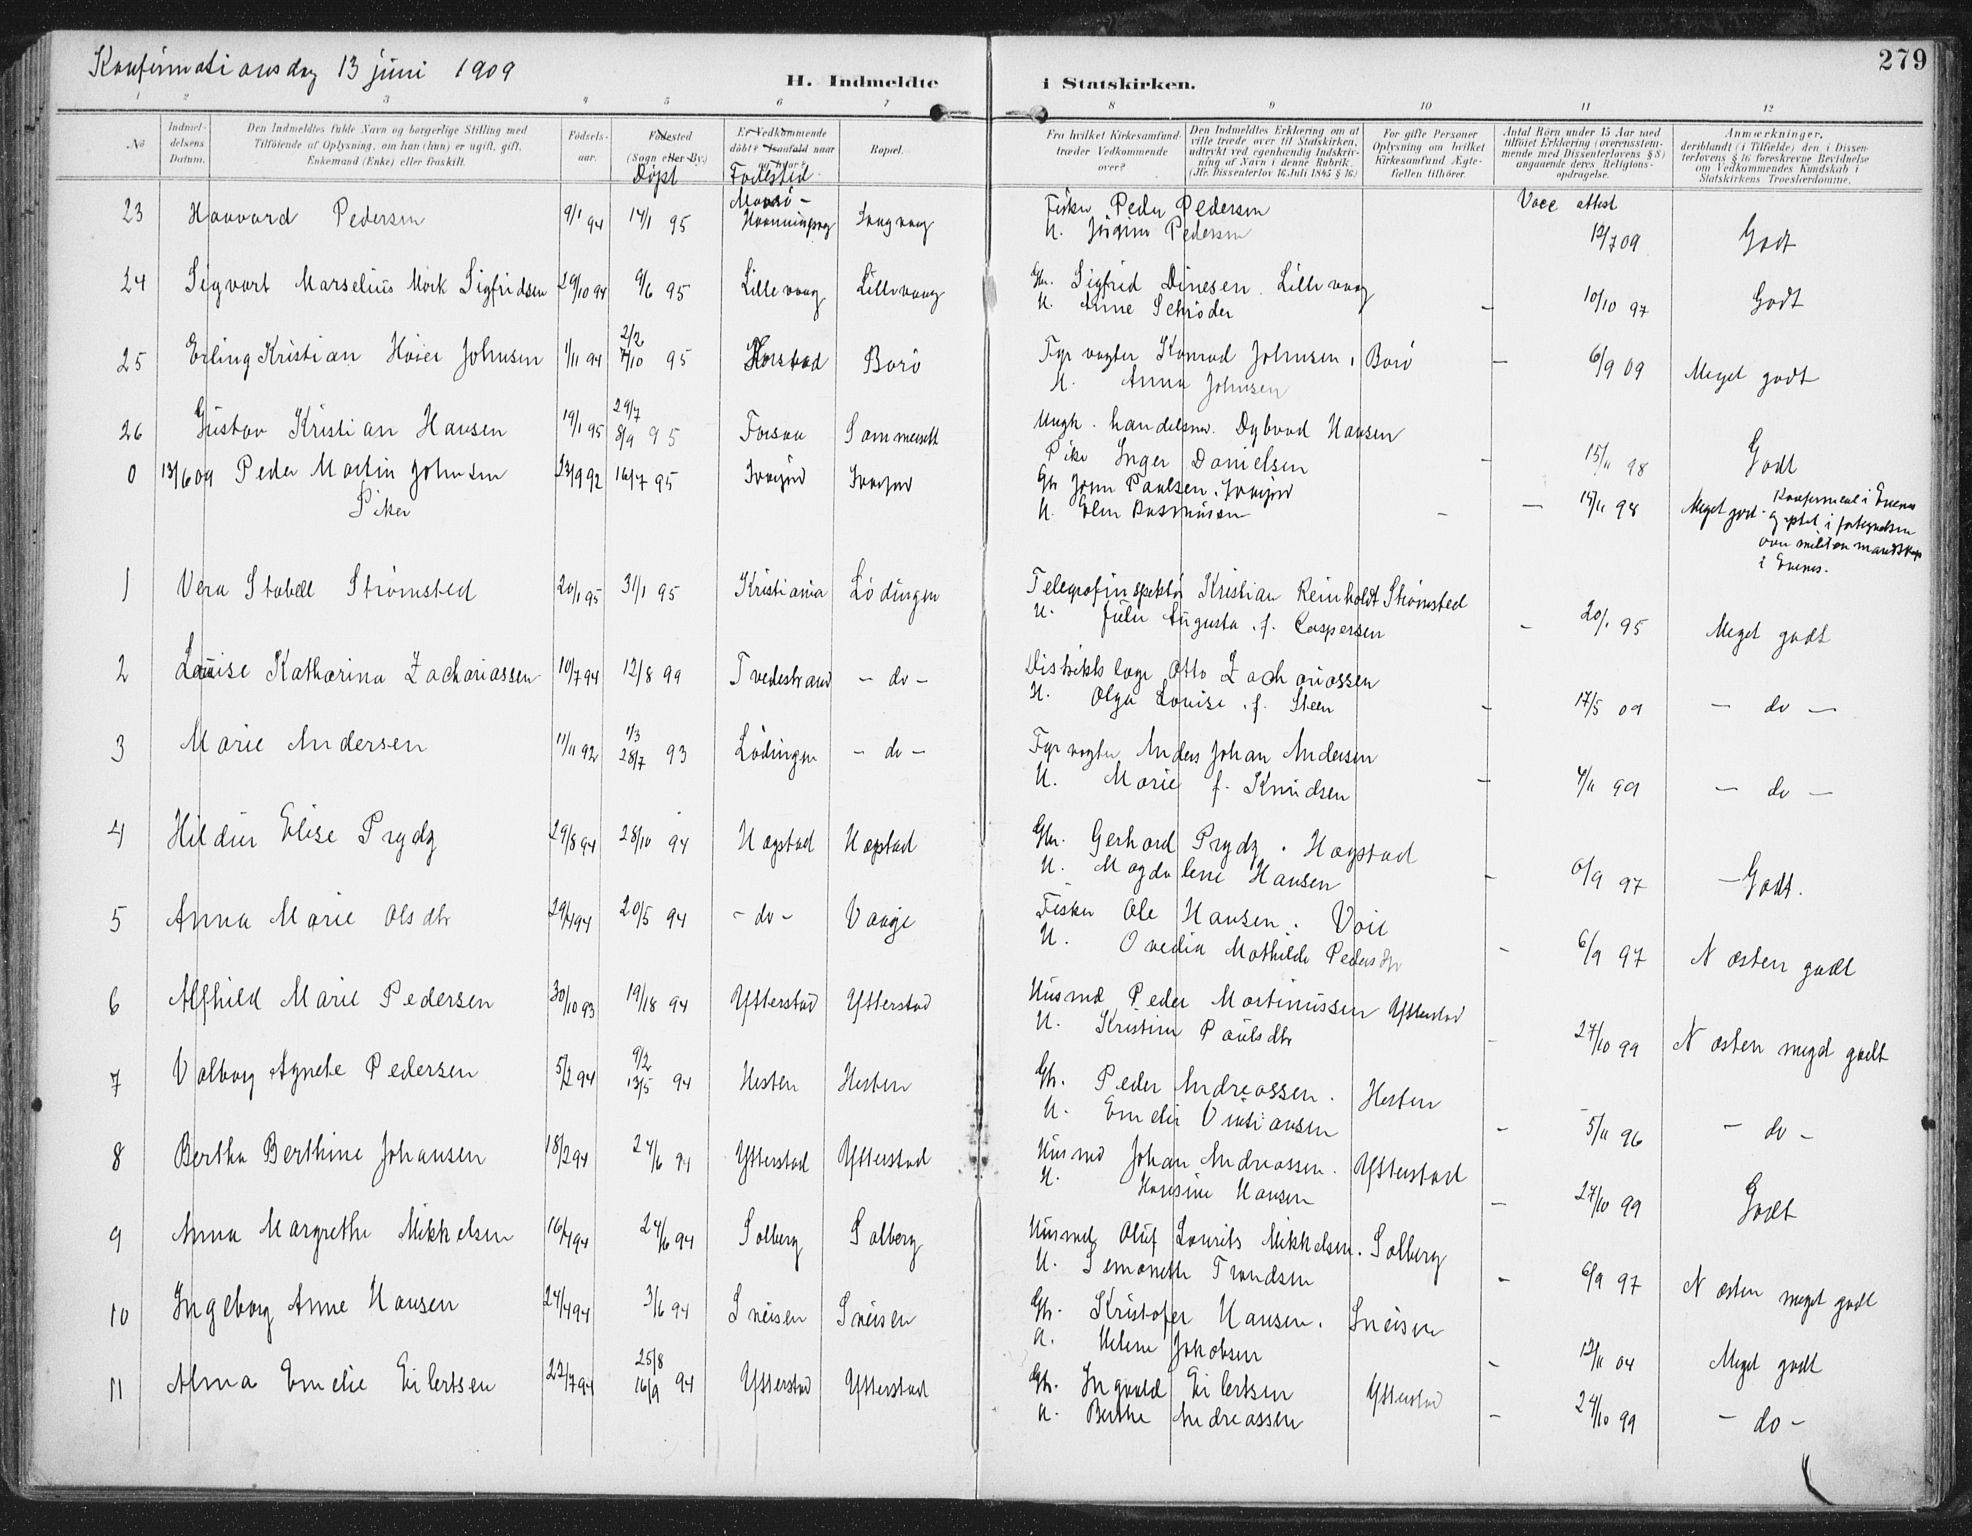 Konfirmationsdag 13 juni 1909
279
H. Indmeldte i Statskirken.
1 2 3 4 5 6 7 8 9 10 11 12
No
Indmeldelsens Datum.
Den Indmeldtes fulde Navn og borgerlige Stilling med Tilføiende af Oplysning, om han (hun) er ugift, gift, Enkemand (Enke) eller fraskilt.
Fødselsaar.
Fødested (Sogn eller By.)
Døpt
Er Vedkommende døbt? Isaafald naar og hvor?
Fødested
Bopæl.
Fra hvilket Kirkesamfund træder Vedkommende over?
Den Indmeldtes Erklæring om at ville træde over til Statskirken, udtrykt ved egenhændig Indskrivning af Navn i denne Rubrik. (Jfr. Dissenterlov 16 Juli 1845 § 16)
For gifte Personer Oplysning om hvilket Kirkesamfund Ægtefællen tilhører.
Antal Börn under 15 Aar med tilføiet Erklæring (overensstemmende med Dissenterlovens § 8) angaaende deres Religionsopdragelse.
Anmærkninger, deriblandt (i Tilfælde) den i Dissenterlovens § 16 foreskrevne Bevidnelse om Vedkommendes Kundskab i Statskirkens Troeslærdomme.
Vacc attest
23 Haavard Pedersen 9/1 94 14/1 95 Fisker Peder Pedersen
U. Pedersen 12/7 09 Godt
24 Sigvart Marselius Mork Sigfridsen 29/10 94 9/6 95 Lillevaag Lillevaag Gbr. Sigfrid Dinesen. Lillevaag
U. Anne Schrøder - 10/10 97 Godt
25 Erling Kristian Høier Johnsen 1/11 94 2/2 7/10 95 Barø Fyrvogter Konrad Johnsen, Barø
U. Anna Johnsen - 6/9 09 Meget godt
26 Gustav Kristian Hansen 19/1 95 29/7 8/9 95 Forsaa Sommersett Ungk. handelsm. Dybvad Hansen
Pike Inger Danielsen - 15/11 98 Godt
0 13/6 09 Peder Martin Johnsen 23/9 92 16/7 95 Gbr John Paulsen.
Fisker U. Elen Rasmussen - 15/11 98 Meget godt. Konfirmeret i Evenes
og optat i fortegnelsen
over militær mandskap
i Evenes.
1 Vera Stabell Strømsted 20/1 95 31/1 95 Kristiania Lødingen Telegrafinspektør Kristian Reinholdt Strømsted
U. Julie Augusta. f. Caspersen - 20/1 95 Meget godt
2 Louise Katharina Zachariassen 10/7 94 12/8 99 Tvedestrand - do - Distriktslæge Otto Zachariassen
U. Olga Louise. f. Steen - 17/5 09 - do -
3 Marie Andersen 11/11 92 1/3 28/7 93 Lødingen - do - Fyrvogter Anders Johan Andersen
U. Marie f. Knudsen - 4/11 99 - do -
4 Hildur Elise Prydz 29/8 94 28/10 94 Hægstad Hægstad Gbr. Gerhard Prydz. Hægstad
U. Magdalene Hansen - 6/9 97 - Godt.
5 Anna Marie Olsdtr 29/4 94 20/5 94 - do - Vaage Fisker Ole Hansen. Voie
U. Ovedia Mathilde Pedersdtr - 6/9 97 Næsten godt
6 Alfhild Marie Pedersen 30/10 93 19/18 94 Ytterstad Ytterstad Husmd Peder Martinussen Ytterstad
U. Kristine Paulsdtr - 27/10 99 Næsten meget godt
7 Valborg Agnete Pedersen 5/2 94 9/2 13/5 94 Hesten Hesten Gbr. Peder Andreassen. Hesten
U. Emelie Kristiansen - 5/11 96 - do -
8 Bertha Berthine Johansen 18/2 94 24/6 94 Ytterstad Ytterstad Husmd Johan Andreassen. Ytterstad
U. Hansine Hansen - 27/10 99 Godt
9 Anna Margrethe Mikkelsen 16/4 94 24/6 94 Solberg Solberg Husmd Oluf Laurits Mikkelsen. Solberg
U. Semonette Trondsen - 6/9 97 Næsten meget godt
10 Ingeborg Anne Hansen 24/4 94 3/6 94 Sneisen Sneisen Gbr. Kristofer Hansen. Sneisen
U. Helene Jakobsen - 12/11 04 Meget godt
11 Alma Emelie Eilertsen 22/7 94 25/8 16/9 94 Ytterstad Ytterstad Gbr. Ingvald Eilertsen Ytterstad
U. Berthe Andreassen - 24/10 99 - do -